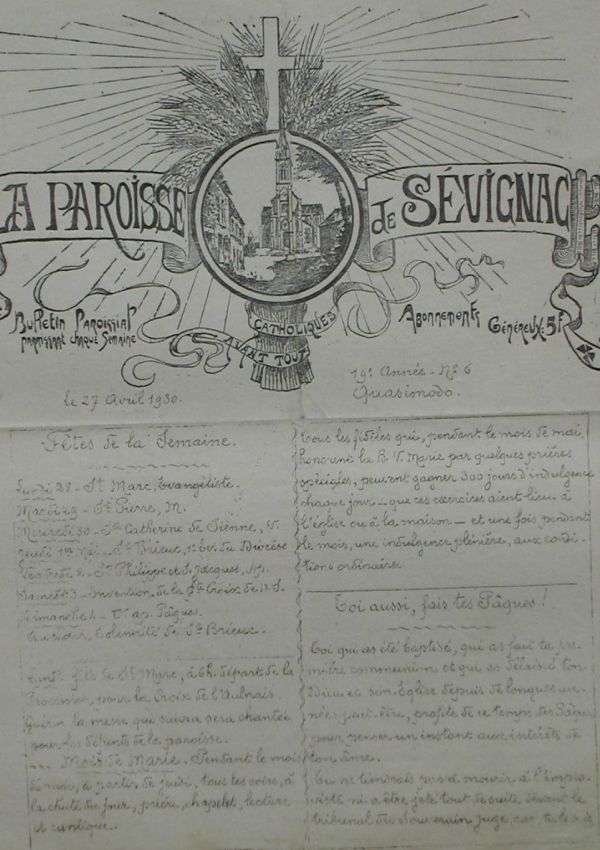 LA PAROISSE de SÉVIGNAC
Bulletin Paroissial
paraissant chaque Semaine
CATHOLIQUES
AVANT TOUT
Abonnements
Généreux: 5f
le 27 Avril 1930.
19e Année - No 6
Quasimodo.
Fêtes de la Semaine.
Lundi 28 - St Marc, Evangéliste.
Mardi 29 - St Pierre, M.
Mercredi 30 - Ste Catherine de Sienne, V.
Jeudi 1er Mai - St Brieuc, 1er év. du Diocèse
Vendredi 2 - Sts Philippe et Jacques, Ap.
Samedi 3 - Invention de la Ste Croix de N.S.
Dimanche 4 - IIe ap. Pâques.
Solennité de St Brieuc.
Lundi, fête de St Marc, à 6h. départ de la
Procession, pour la Croix de l'Aulnais.
la messe qui suivra sera chantée
pour les défunts de la paroisse.
Mois de Marie. Pendant le mois
de mai, à partir de jeudi, tous les soirs, à
la chute du jour, prière, chapelet, lecture
et cantique.
Tous les fidèles qui, pendant le mois de mai,
honorent la B. V. Marie par quelques prières
spéciales, peuvent gagner 300 jours d'indulgence
chaque jour - que ces exercices aient lieu à
l'église ou à la maison - et une fois pendant
le mois, une indulgence plénière, aux condi-
tions ordinaires.
Toi aussi, fais tes Pâques!
Toi qui as été baptisé, qui as fait ta pre-
mière communion et qui as délaissé ton
Dieu et son Eglise depuis de longues an-
nées peut-être, profite de ce temps des Pâques
pour penser un instant aux intérêts de
ton âme.
Tu ne tiendrais pas à mourir à l'impro-
viste ni à être jeté tout de suite devant le
tribunal du Souverain juge, car